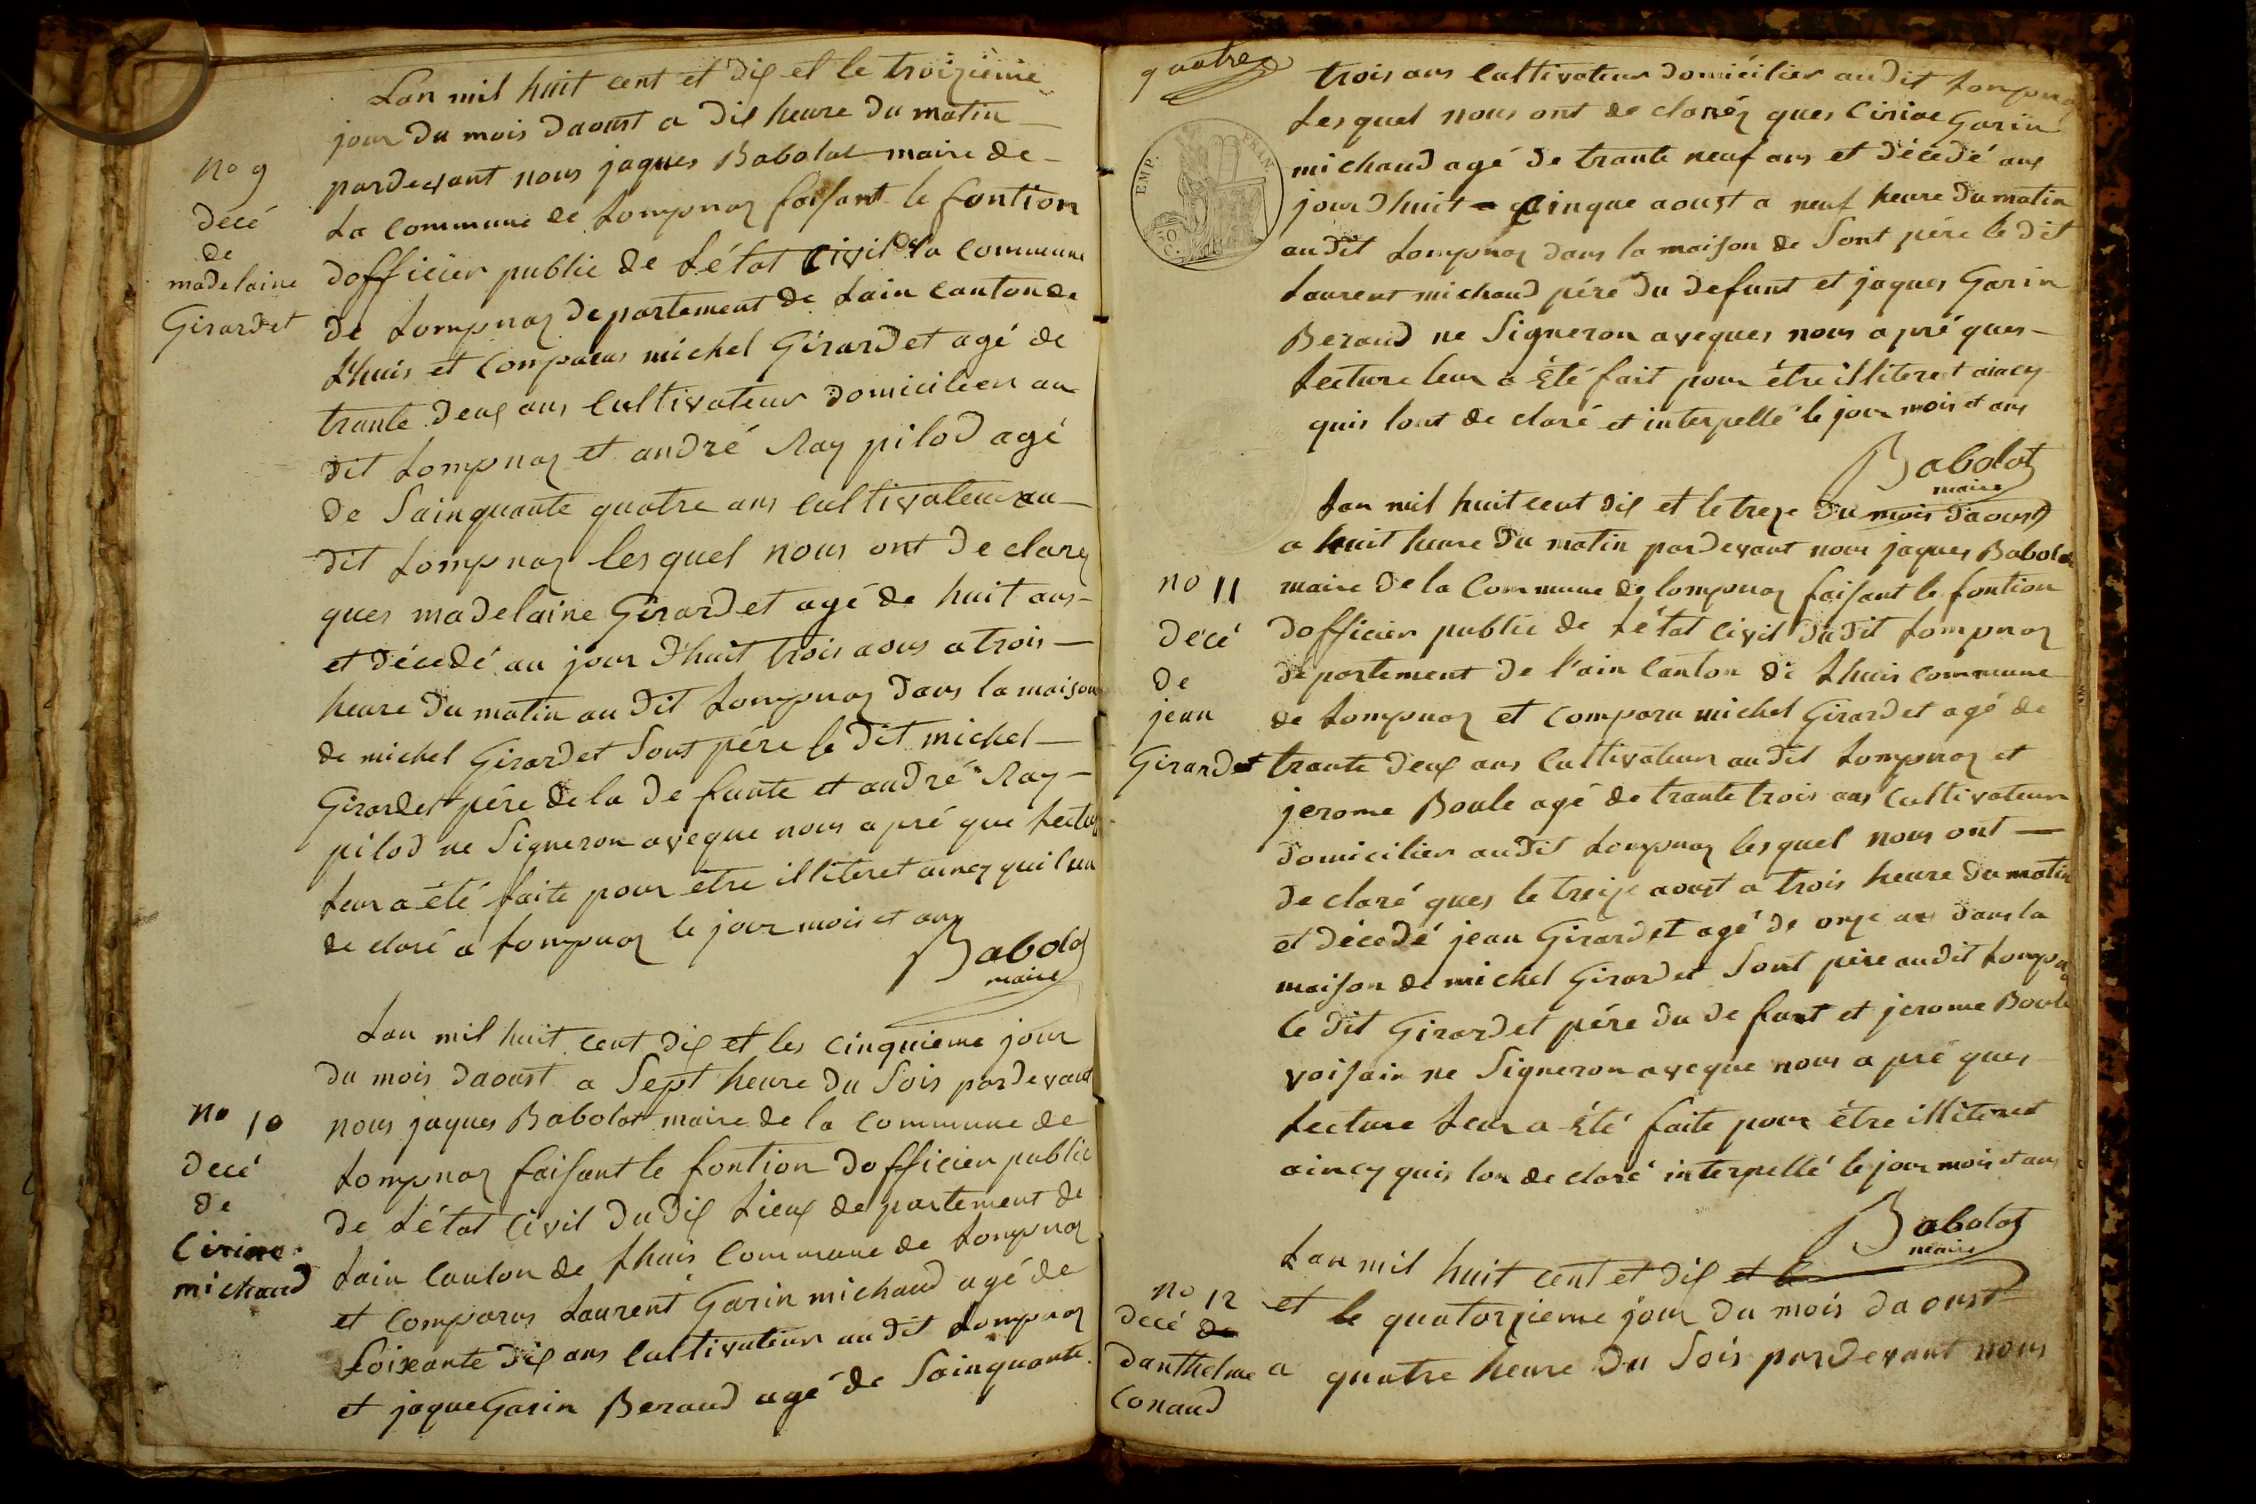 Lan mil huit cent et dix et le troizieme
jour du mois daoust a dix heure du matin
pardevant nous jaques Babolat maire de
La commune de Lompnaz faisant le fontion
dofficier public de Létat civil de la commune
de Lompnaz departement de Lain canton de
Lhuis et comparus michel Girardet agé de
trante deux ans cultivateur domicilier au
dit Lompnaz et andré Ray pilod agé
de Sainquante quatre ans cultivateur au
dit Lompnaz lesquel nous ont declarez
ques madelaine Girardet agé de huit ans
et décedé au jour dhuit trois aous a trois
heure du matin au dit Lompnaz dans la maison
de michel Girardet Sont pére le dit michel
Girardet pére de la defunte et andré Ray
pilod ne Signeron aveque nous apré que Lectur
Leur a été faite pour étre illiteret aincy quil lon
declaré a Lompnaz le jour mois et an
Babolat
maire
No 9
Decé
de
madelaine
Girardet
Lan mil huit cent dix et les cinquieme jour
du mois daoust a Sept heure du Sois pardevant
nous jaques Babolat maire de la commune de
Lompnaz faisant le fontion dofficier public
de Létat civil dudix Lieux departement de
Lain canton de Lhuis commune de Lompnaz
et comparus Laurent Garin michaud agé de
Soixante dix ans cultivateur audit Lompnaz
et jaque Garin Beraud agé de Sainquante
No 10
Decé
de
michaud
quatre
EMP. FRAN.
trois ans cultivateur domicilier audit Lompnaz
Lesquel nous ont declarez ques Garin
michaud agé de trante neuf ans et décedé aux
jourdhuit cinque aoust a neuf heure du matin
audit Lompnaz dans la maison de Sont pére le dit
Laurent michaud pére du defunt et jaques Garin
Beraud ne Signeron aveques nous apré ques
Lecture leur a été fait pour étre illiteret aincy
quis lont declaré et interpellé le jour mois et ans
Babolat
maire
Lan mil huit cent dix et le treze du mois daoust
a huit heure du matin pardevant nous jaques Babolat
maire de la Commune de lompnaz faisant le fontion
dofficier public de Létat civil dudit Lompnaz
departement de l'ain canton de Lhuis commune
de Lompnaz et comparu michel Girardet agé de
trante deux ans cultivateur audit Lompnaz et
jerome Boule agé de trante trois ans cultivateur
domicilier audit Lompnaz lesquel nous ont
declaré ques le treize aoust a trois heure du matin
et décedé jean Girardet agé de onze ans dans la
maison de michel Girardet Sont pére audit Lompnaz
le dit Girardet pére du defunt et jerome Boule
voisain ne Signeron aveque nous apré ques
Lecture Leur a été faite pour étre illiteret
aincy quis lon declaré interpellé le jour mois et ans
Babolat
maire
no 11
Décé
de
jean
Girardet
Lan mil huit cent et dix et le
et le quatorzieme jour du mois daoust
a quatre heure du Sois pardevant nous
No 12
Decé de
Danthelme
Conaud